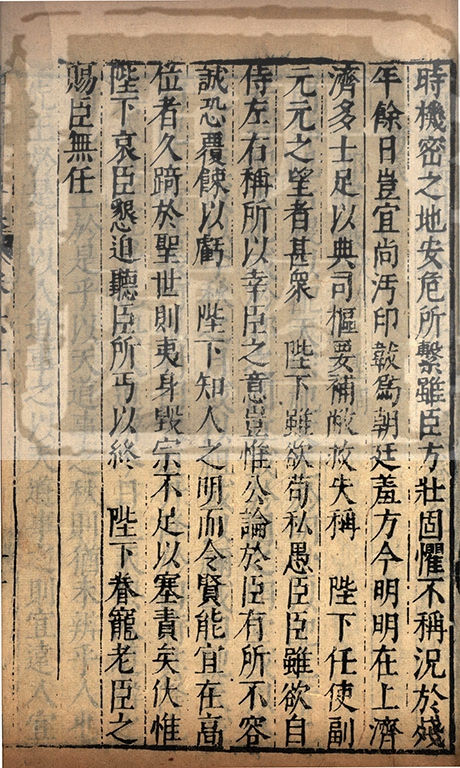 時機密之地安危所繫雖臣方壯固懼不稱況於殘
年餘日豈宜尚汚印韍爲朝廷羞方今明明在上濟
濟多士足以典司樞要補敝救失稱　陛下任使副
元元之望者甚衆　陛下雖欲苟私愚臣臣雖欲自
侍左右稱所以幸臣之意豈惟公論於臣有所不容
誠恐覆餗以虧　陛下知人之明而令賢能宜在高
位者久躋於聖世則夷身毀宗不足以塞責矣伏惟
陛下哀臣懇迫聽臣所丐以終　陛下眷寵老臣之
賜臣無任